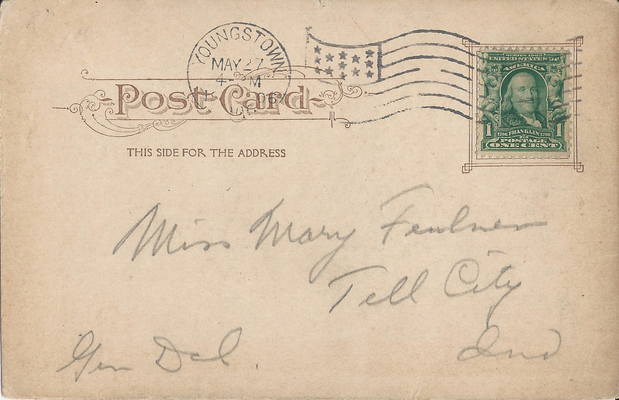 YOUNGSTOWN
MAY 27
4- M
Post Card
THIS SIDE FOR THE ADDRESS
SERIES 1902
UNITED STATES OF
AMERICA
1 FRANKLIN 1
POSTAGE
ONE CENT
Miss Mary Feulner
Tell City
Ind
Gen Del.